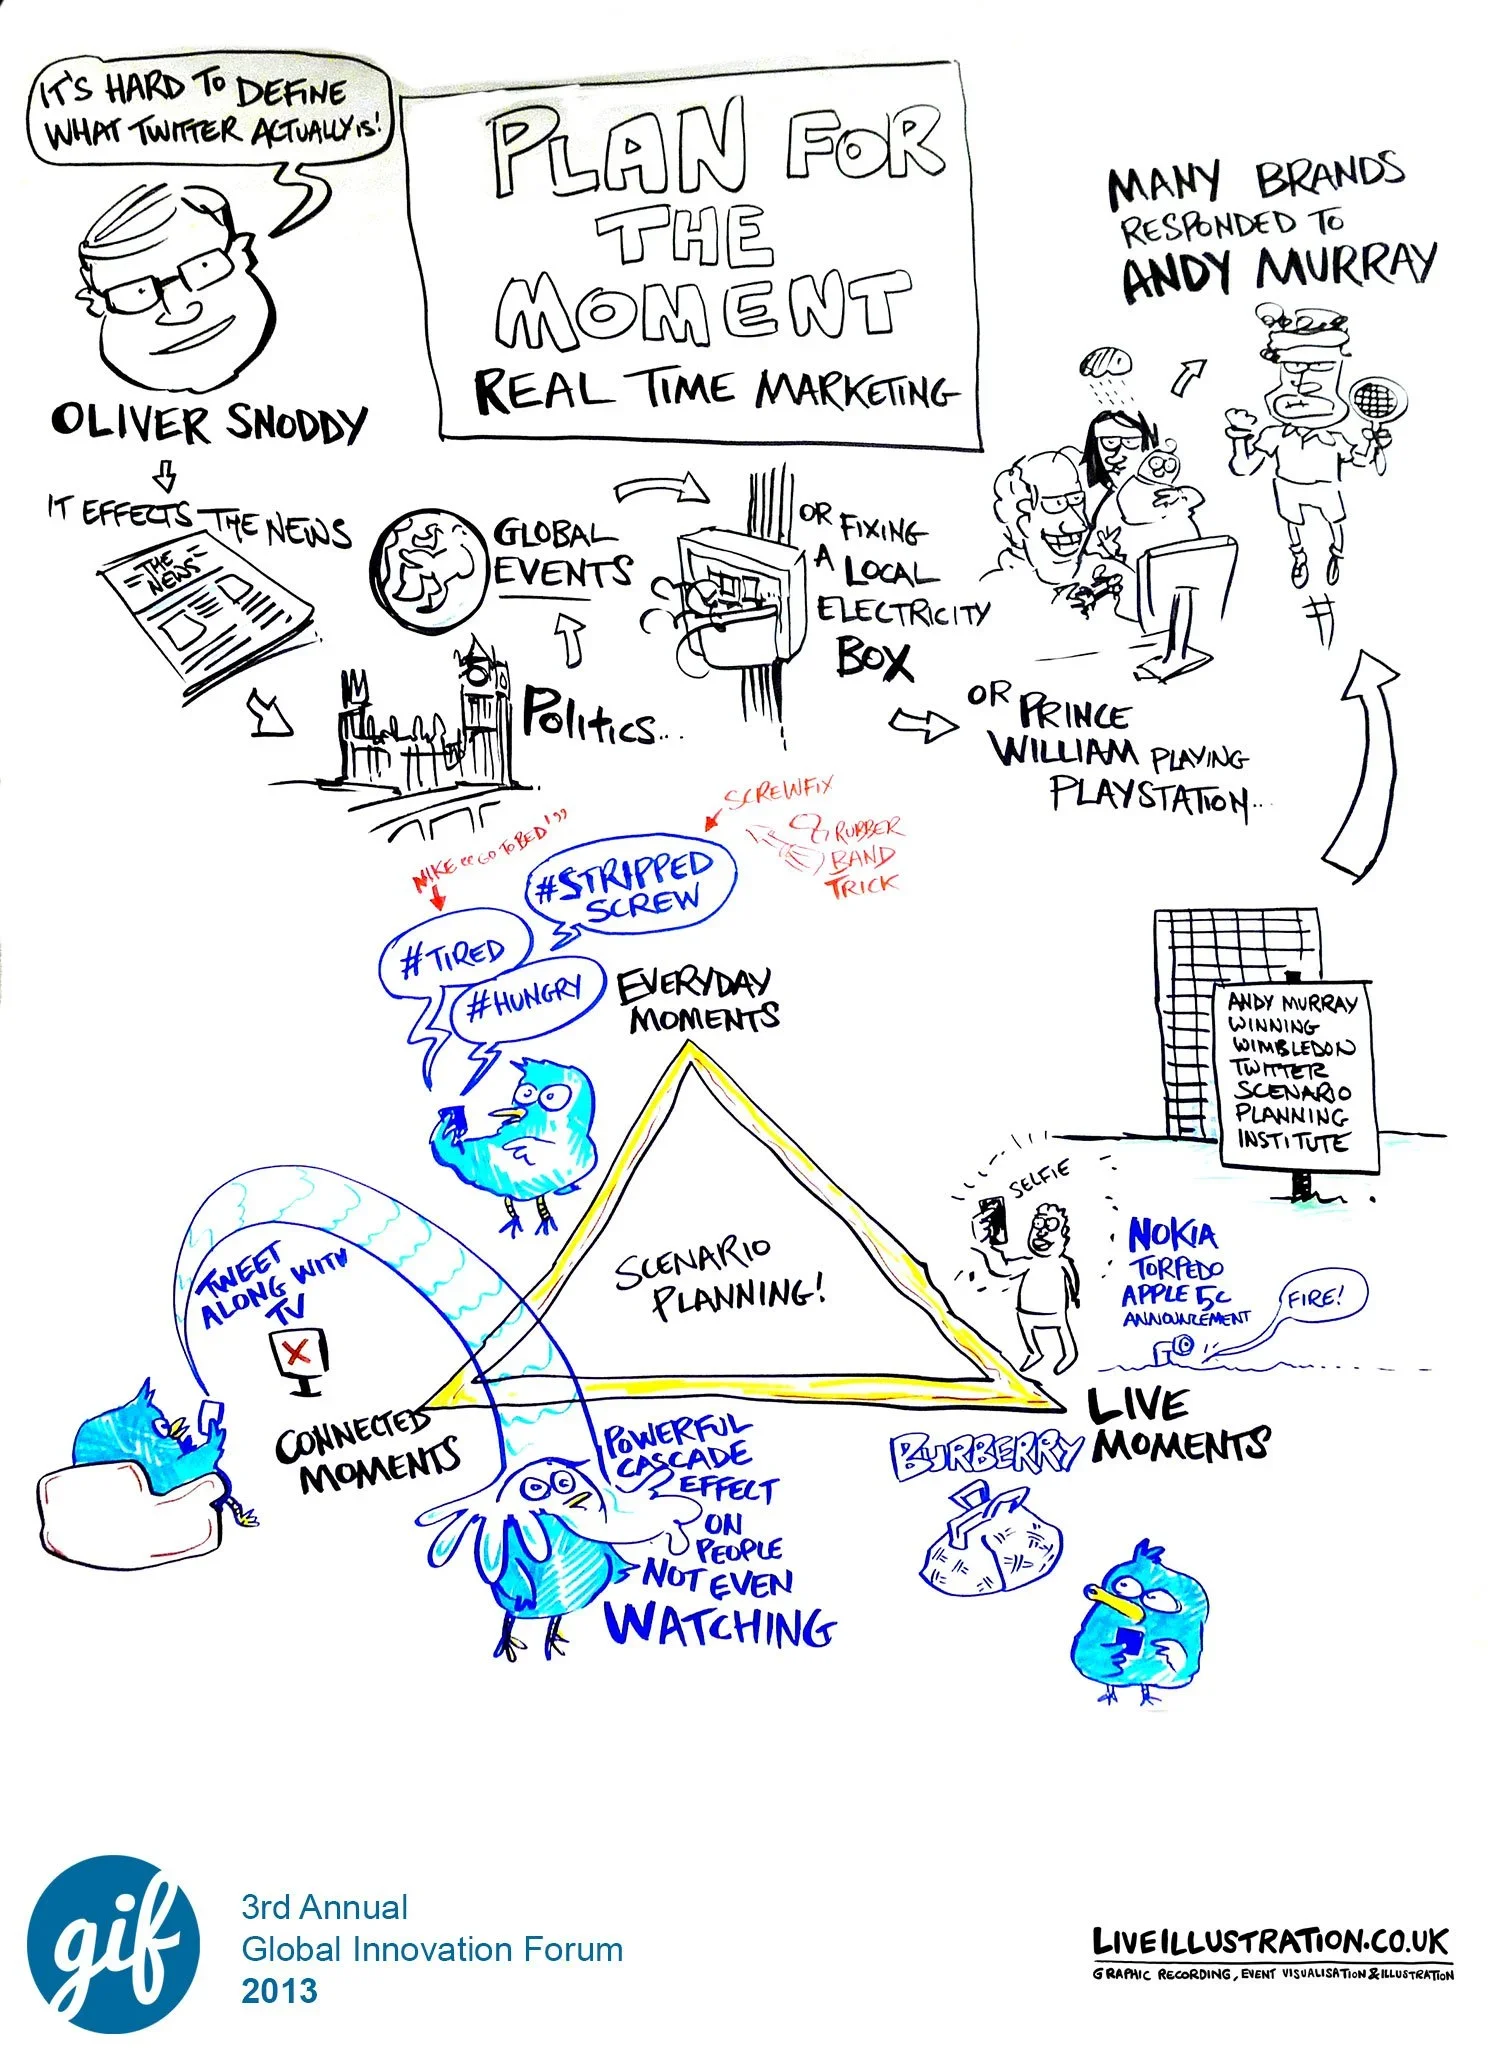 IT'S HARD TO DEFINE
WHAT TWITTER ACTUALLY IS!
PLAN FOR
THE
MOMENT
REAL TIME MARKETING
MANY BRANDS
RESPONDED TO
ANDY MURRAY
OLIVER SNODDY
IT EFFECTS THE NEWS
THE
NEWS
GLOBAL
EVENTS
POLITICS...
OR FIXING
A LOCAL
ELECTRICITY
BOX
OR PRINCE
WILLIAM PLAYING
PLAYSTATION...
SCREWFIX
RUBBER
BAND
TRICK
NIKE "GO TO BED"
#STRIPPED
SCREW
#TIRED
#HUNGRY
EVERYDAY
MOMENTS
ANDY MURRAY
WINNING
WIMBLEDON
TWITTER
SCENARIO
PLANNING
INSTITUTE
SELFIE
SCENARIO
PLANNING!
NOKIA
TORPEDO
APPLE 5C
ANNOUNCEMENT
FIRE!
TWEET
ALONG WITH
TV
X
CONNECTED
MOMENTS
POWERFUL
CASCADE
EFFECT
ON
PEOPLE
NOT EVEN
WATCHING
LIVE
MOMENTS
BURBERRY
gif
3rd Annual
Global Innovation Forum
2013
LIVEILLUSTRATION.CO.UK
GRAPHIC RECORDING, EVENT VISUALISATION & ILLUSTRATION